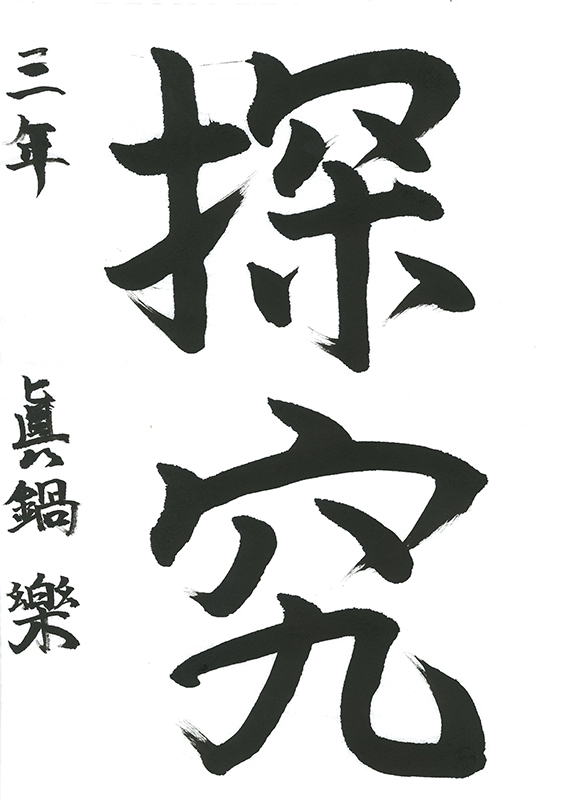 探究
三年 眞鍋 樂